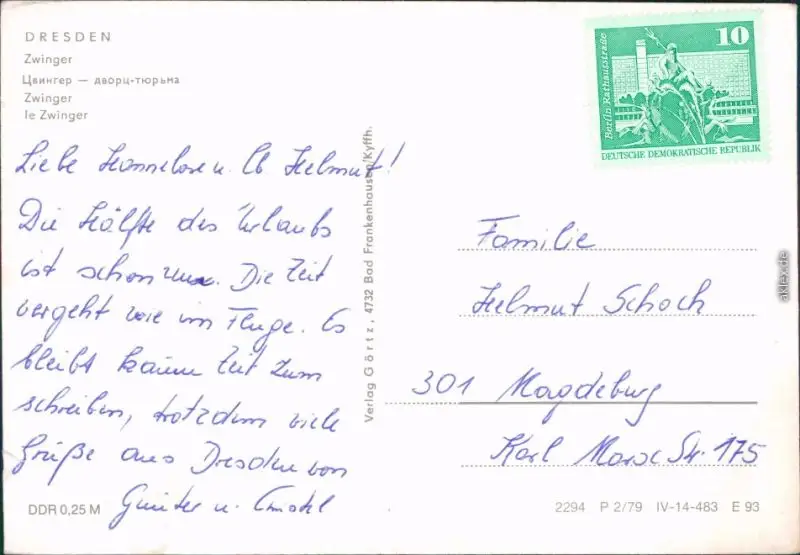 DRESDEN
Zwinger
Цвингер — дворц-тюрьма
Zwinger
le Zwinger
Liebe Hannelore u. lb Helmut!
Die Hälfte des Urlaubs
ist schon rum. Die Zeit
vergeht wie im Fluge. Es
bleibt kaum Zeit zum
schreiben, trotzdem viele
Grüße aus Dresden von
Günter u.
DDR 0,25 M
Verlag Görtz, 4732 Bad Frankenhausen/Kyffh.
Berlin Rathausstraße
10
DEUTSCHE DEMOKRATISCHE REPUBLIK
Familie
Helmut Schoch
301 Magdeburg
Karl Marx Str. 175
2294 P 2/79 IV-14-483 E 93
akleX.de